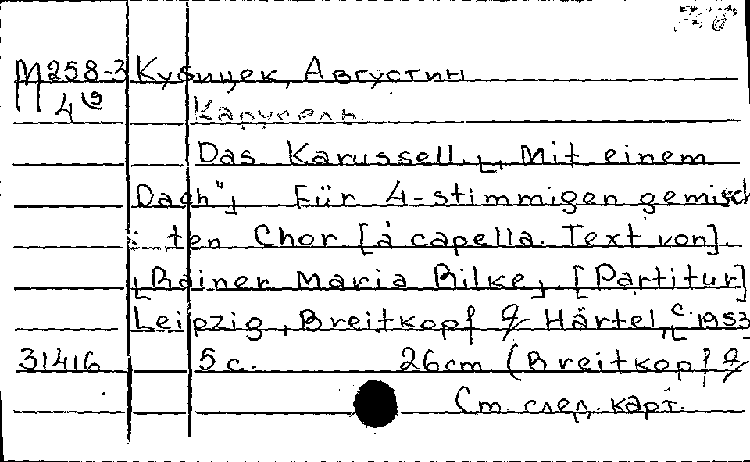 М258-3 Кубицек, Августин
4 Карусель
Das Karussell. „Mit einem
Dach" Für 4-stimmigen gemisch
ten Chor [á capella. Text von]
[Rainer Maria Rilke] [Partitur]
Leipzig, Breitkopf & Härtel, [c 1953
31416 5 с. 26cm (Breitkopf &
См. след. карт.